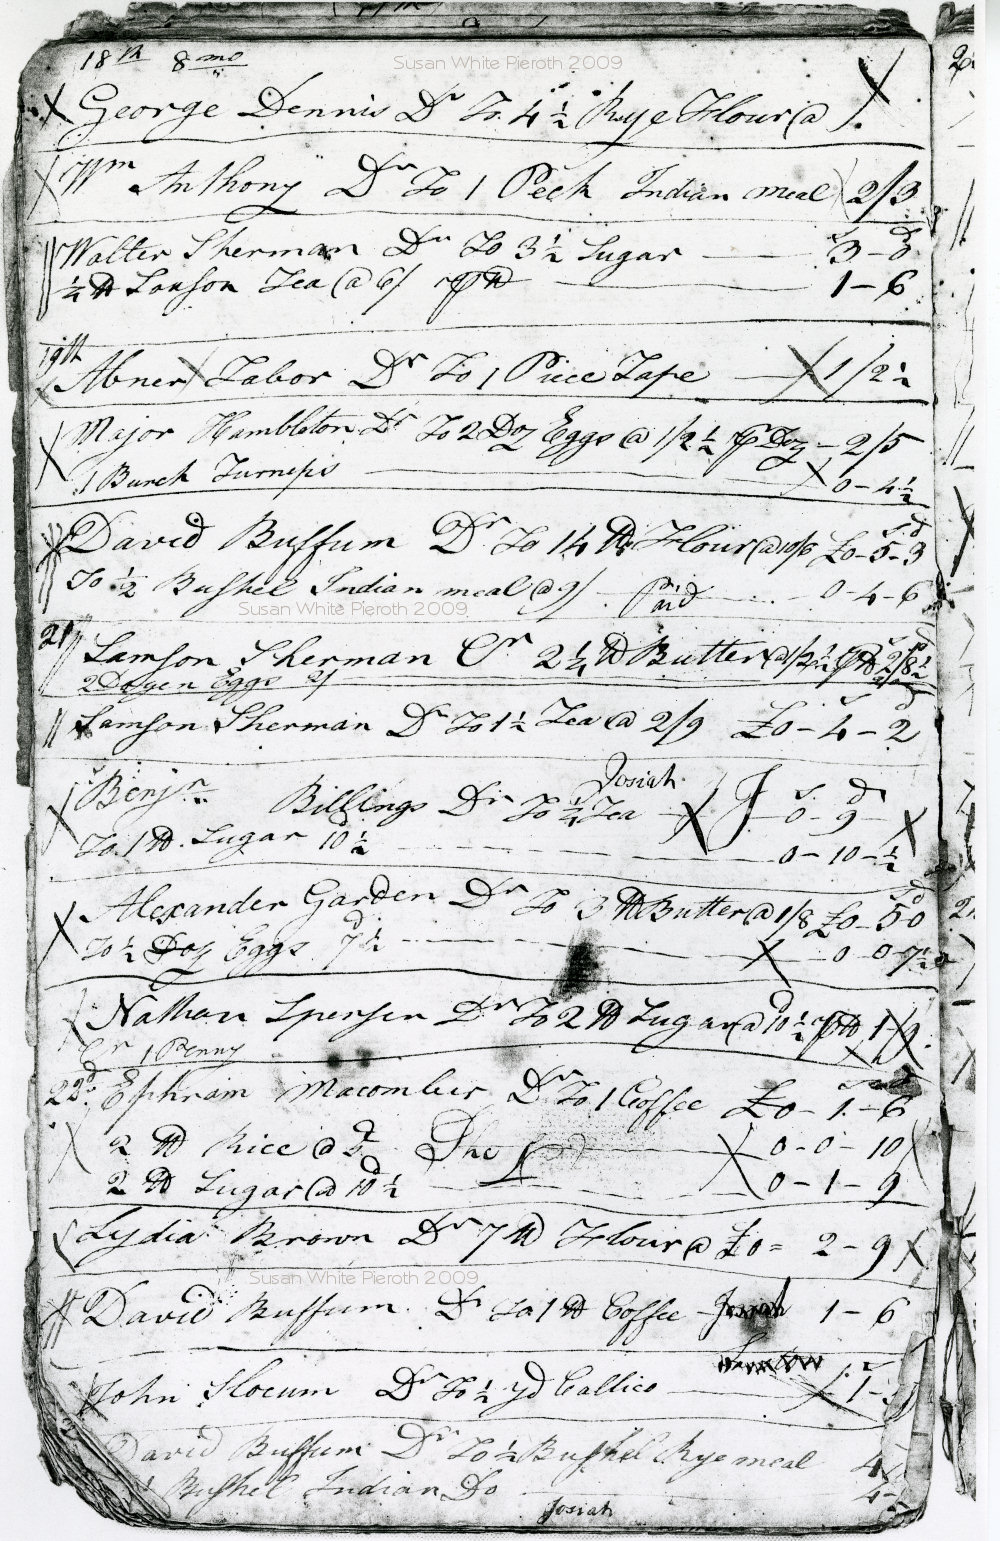 18th 8mo
Susan White Pieroth 2009
George Dennis Dr To 4 ½ Rye Flour @
Wm Anthony Dr To 1 Peck Indian meal 2/3
Walter Sherman Dr To 3 ½ Sugar 3-0
¼ lb Souson Tea @ 6/ 1-6
19th
Abner Tabor Dr To 1 Piece Tape 1/2½
Major Hambleton Dr To 2 Doz Eggs @ 1/2½ Doz - 2/5
1 Bunch Turneps 0-4½
David Buffum Dr To 14 lb Flour @ £0-5-3
To ½ Bushel Indian meal @ 9/ Paid 0-4-6
Susan White Pieroth 2009
21
Samson Sherman Cr 2¼ lb Butter @ 1/2½ 2/8½
2 Dozen Eggs 2/
Samson Sherman Dr To 1½ Tea @ 2/9 £0-4-2
Josiah
Benjn Billings Dr To ¼ Tea 0-9-
To 1 lb Sugar 10½ 0-10-½
Alexander Garden Dr To 3 lb Butter @ 1/8 £0-5-0
To ½ Doz Eggs 7½ 0-0-7½
Nathan Spensen Dr To 2 lb Sugar @ 10½ 1/9
Cr 1 Penny
22d Ephraim Macomber Dr To 1 Coffee £0-1-6
2 lb Rice @ 5 0-0-10
2 lb Sugar @ 10½ 0-1-9
Lydia Brown Dr 7 lb Flour @ £0=2-9
Susan White Pieroth 2009
David Buffum Dr To 1 lb Coffee Josiah 1-6
John Slocum Dr To ½ yd Callico 1-
David Buffum Dr To ½ Bushel Rye meal 4
Bushel Indian Do 4-
Josiah